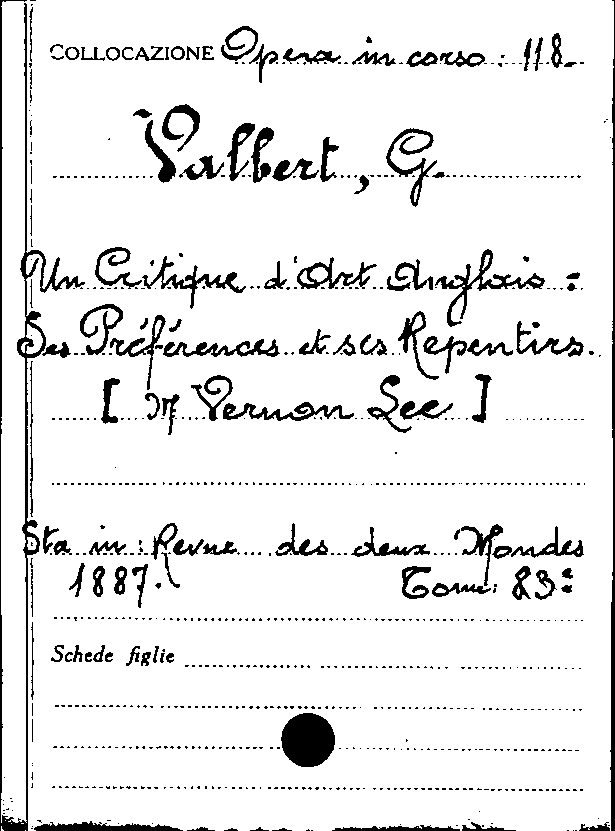 COLLOCAZIONE Opera in corso: 118.
Valbert, G.
Un Critique d'Art Anglais =
Ses Préférences et ses Repentirs.
[ Vernon Lee ]
Sta in: Revue des deux Mondes
1887. Tome: 83=
Schede figlie